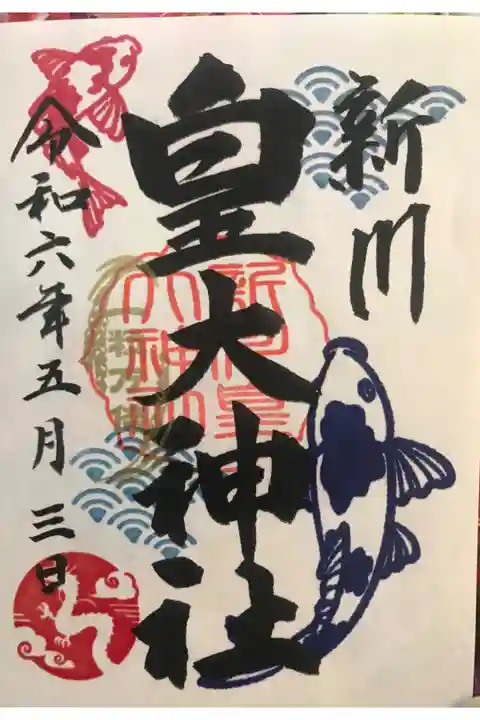 新川
皇大神社
令和六年五月三日